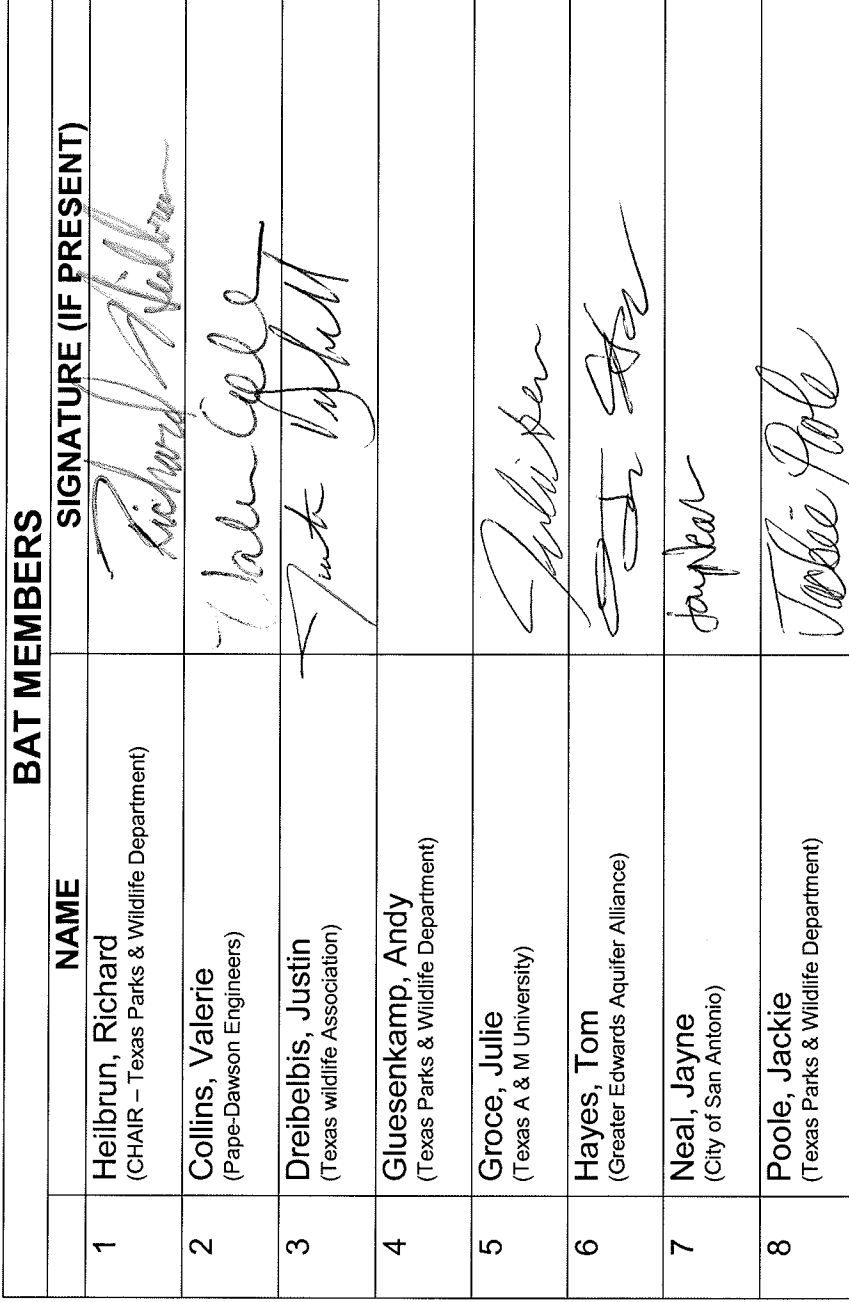 BAT MEMBERS
NAME
SIGNATURE (IF PRESENT)
1
Heilbrun, Richard
(CHAIR – Texas Parks & Wildlife Department)
Richard Heilbrun
2
Collins, Valerie
(Pape-Dawson Engineers)
3
Dreibelbis, Justin
(Texas wildlife Association)
4
Gluesenkamp, Andy
(Texas Parks & Wildlife Department)
5
Groce, Julie
(Texas A & M University)
6
Hayes, Tom
(Greater Edwards Aquifer Alliance)
7
Neal, Jayne
(City of San Antonio)
8
Poole, Jackie
(Texas Parks & Wildlife Department)
Jackie Poole